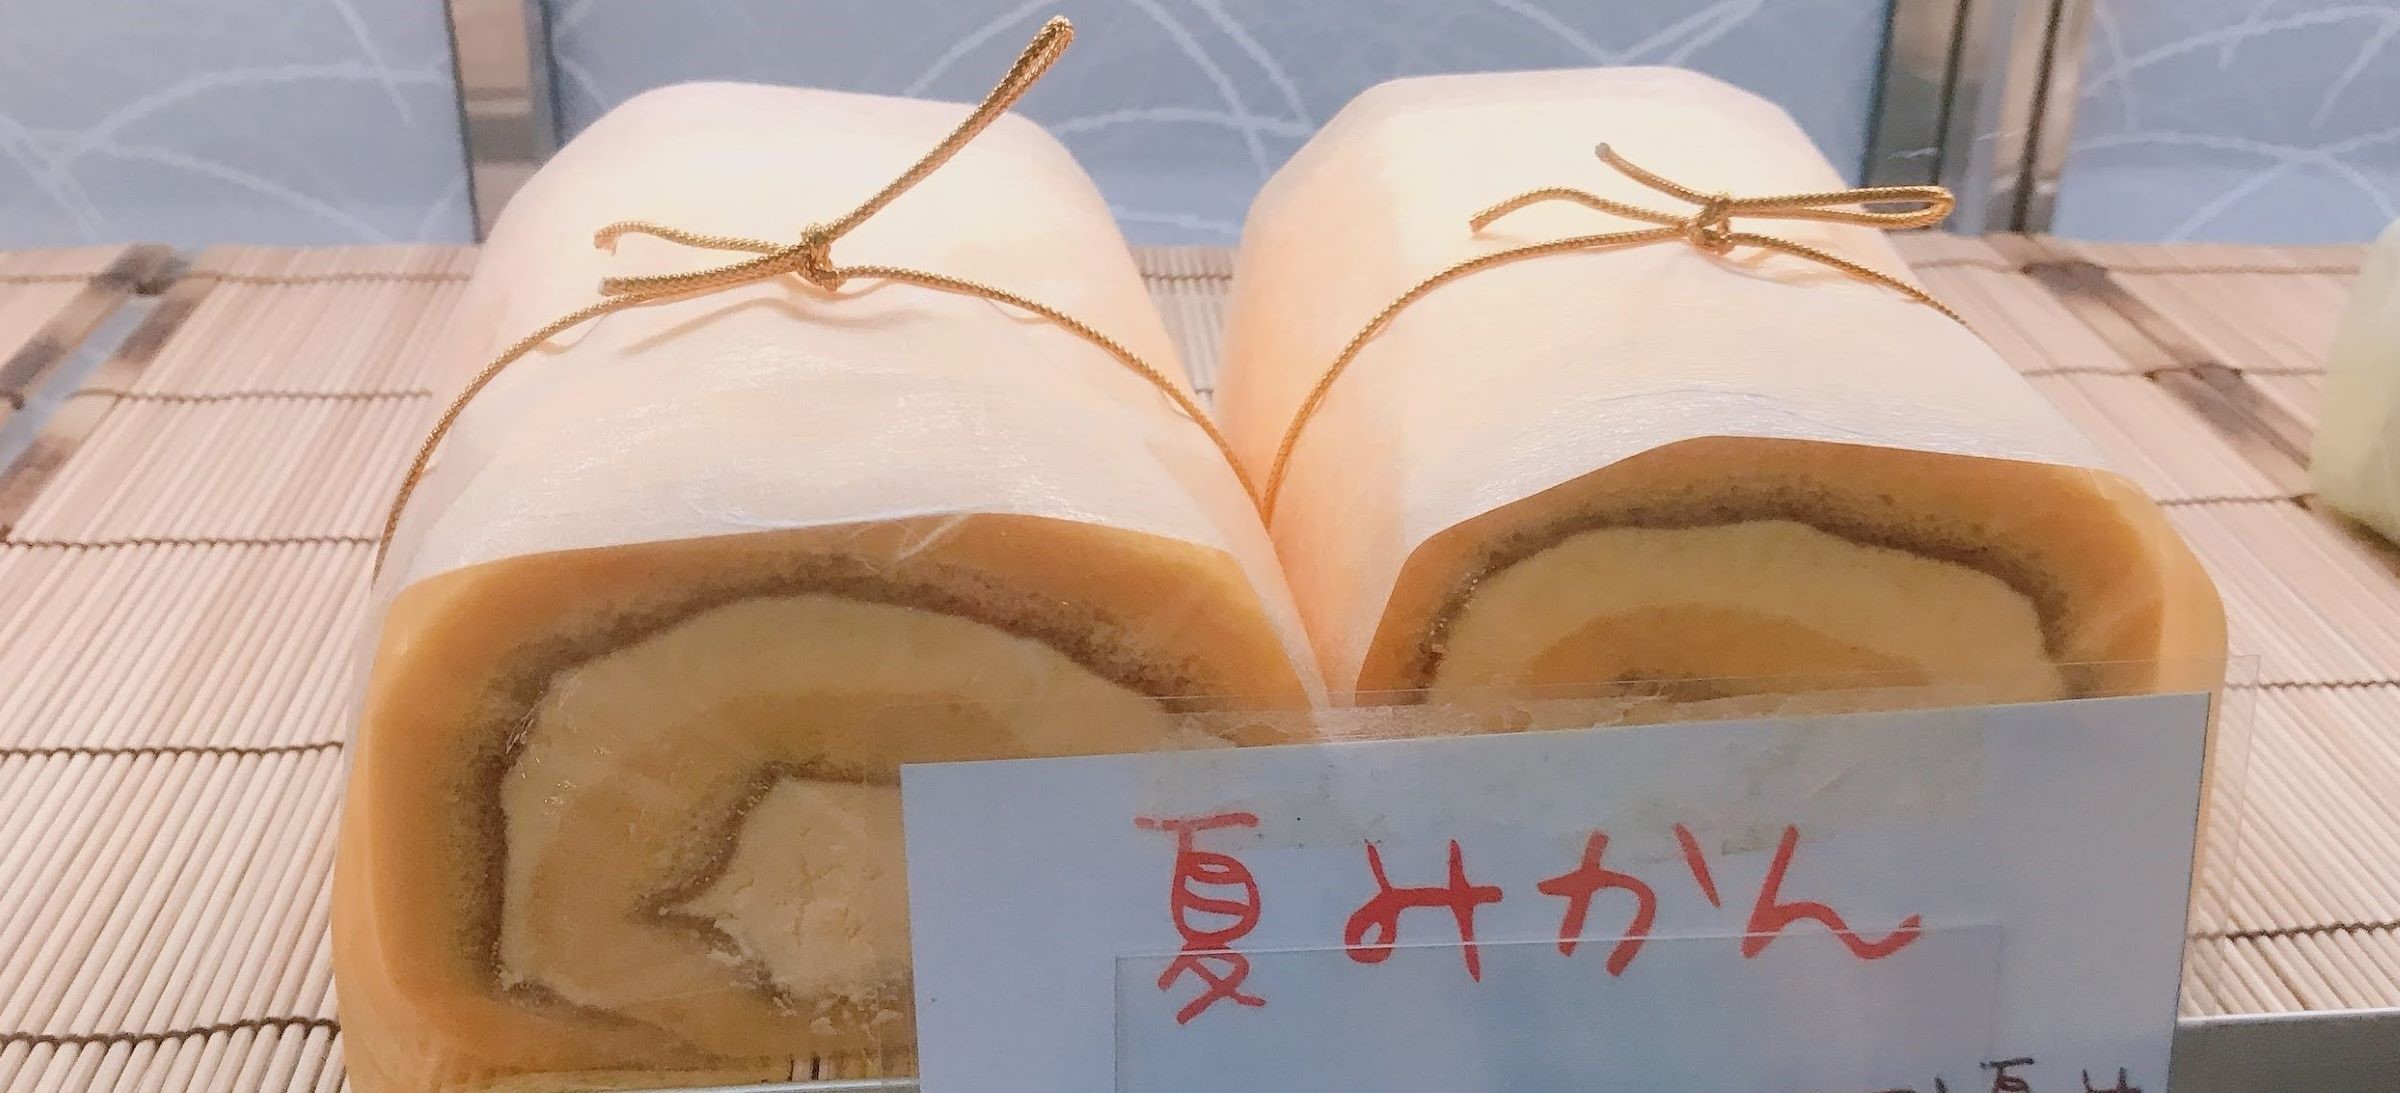 夏みかん